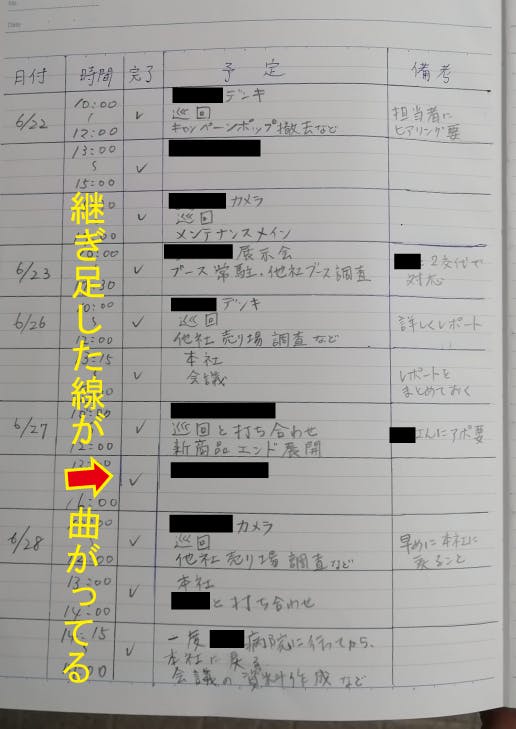 No.
Date
日付 時間 完了 予定 備考
6/22 10:00 〜 12:00 ✓ デンキ
巡回
キャンペーンポップ撤去など
担当者に
ヒアリング要
13:00 〜 15:00 ✓
✓ カメラ
巡回
メンテナンスメイン
6/23 ✓ 展示会
ブース常駐・他社ブース調査
2交代で
対応
6/26 ✓ デンキ
巡回
他社売り場調査など
詳しくレポート
✓ 本社
会議
レポートを
まとめておく
6/27 ✓
巡回と打ち合わせ
新商品エンド展開
さんにアポ要
✓
6/28 ✓ カメラ
巡回
他社売り場調査など
早めに本社に
戻ること
13:00 〜 14:00 ✓ 本社
と打ち合わせ
14:15 ✓ 一度 病院に行ってから、
本社に戻る
会議の資料作成など
継ぎ足した線が
曲がってる